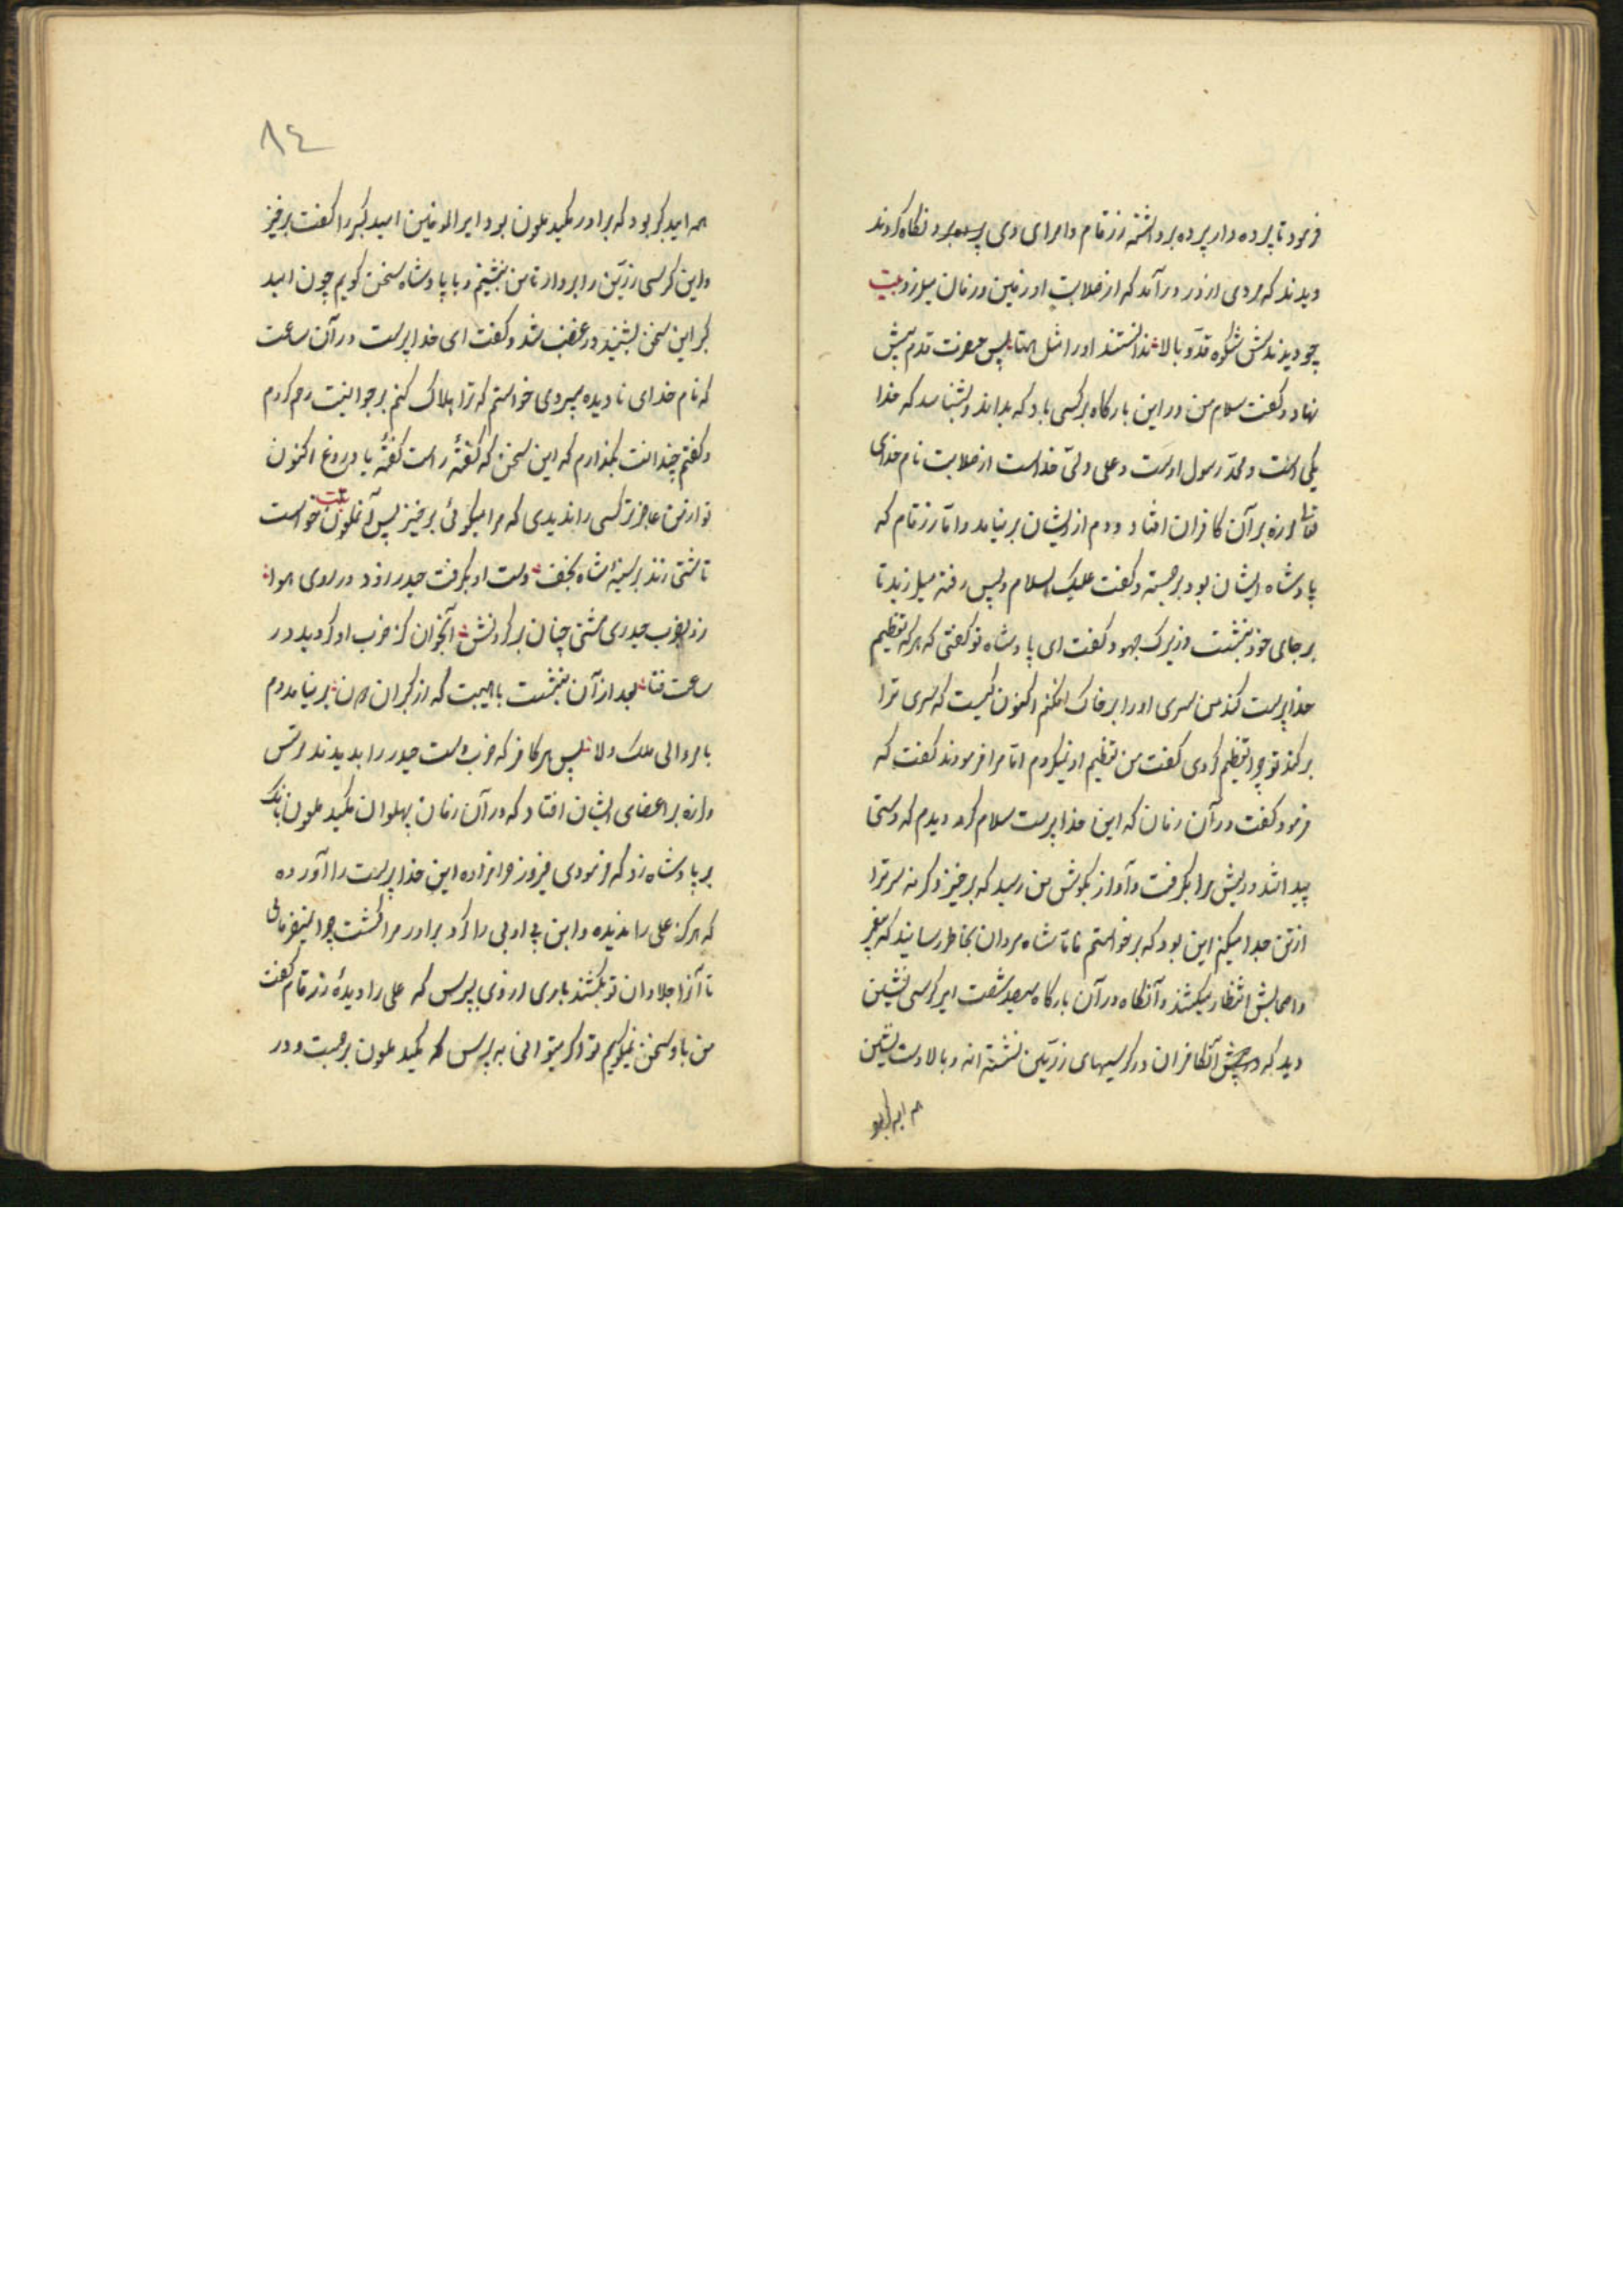 فرمود تا پرده دار پرده برداشته زرقام و امرای وی نگاه کردند
دیدند که مردی از در درآمد که از صلابت او زمین و زمان میلرزد بیت
چو دیدندش شکوه قد و بالا ندانستند او را مثل همتا پس حضرت قدم پیش
نهاد و گفت سلام من در این بارگاه بر کسی باد که بداند و بشناسد که خدا
یکی است و محمد رسول اوست و علی ولی خداست از صلابت نام خدای
لرزه بر آن کافران افتاد و دم از ایشان بر نیامد و اما زرقام که
پادشاه ایشان بود برجسته و گفت علیک السلام و پس رفته میلرزید تا
بر جای خود بنشست وزیرک جهود گفت ای پادشاه تو گفتی که هر که تعظیم
خداپرست کند من سری او را بر خاک افکنم اکنون کیست که سری ترا
بر کند تو چرا تعظیم کردی گفت من تعظیم او نیکردم اما مرا فرمودند گفت که
فرمود گفت در آن زمان که این خداپرست سلام کرد دیدم که دستی
پیدا شد و ریش مرا بگرفت و آواز بگوش من رسید که برخیز و گرنه سر ترا
از تن جدا میکنم این بود که برخواستم تا شاه مردان بخاطر رسانید که پیغمبر
و اصحابش انتظار میکشند و آنگاه در آن بارگاه سیصد شصت امیر کرسی نشین
دید که در پیش آنکافران در کرسیهای زرین نشسته اند و بالا دست نشین
۸٤
همه امید کبر بود که برادر مکید ملعون بود امیرالمومنین امید کبر را گفت برخیز
و این کرسی زرین را بردار تا من بنشینم و با پادشاه سخن گویم چون امید
کبر این سخن بشنید در غضب شد و گفت ای خداپرست در آن ساعت
که نام خدای نادیده میبردی خواستم که ترا هلاک کنم بر جوانیت رحم کردم
و گفتم چندانت بگذارم که این سخن که گفتهٔ راست گفتهٔ یا دروغ اکنون
تو از من عاجزتر کسی را ندیدی که مرا میگوئی برخیز پس آنملعون بیت خواست
تا مشتی زند بر سینهٔ شاه نجف دست او بگرفت حیدر زود در روی هوا
زد بضرب حیدری مشتی چنان بر گردنش آنچنان کز ضرب او گردید در
ساعت فنا بعد از آن بنشست باهیبت که از کبران بر نیامد دم
بامر والی ملک ولا پس هر کافر که ضرب دست حیدر را بدیدند ترس
و لرزه بر اعضای ایشان افتاد که در آن زمان پهلوان مکید ملعون بانگ
بر پادشاه زد که فرمودی فیروز حرامزاده این خداپرست را آورده
که هرگز علی را ندیده و این بی ادبی را کرد برادر مرا کشت چرا نمیفرمائی
تا آنرا جلادان تو بکشند باری از وی بپرس که علی را دیدهٔ زرقام گفت
من با او سخن نمیگویم تو اگر میتوانی به پرس که مکید ملعون برجست و در